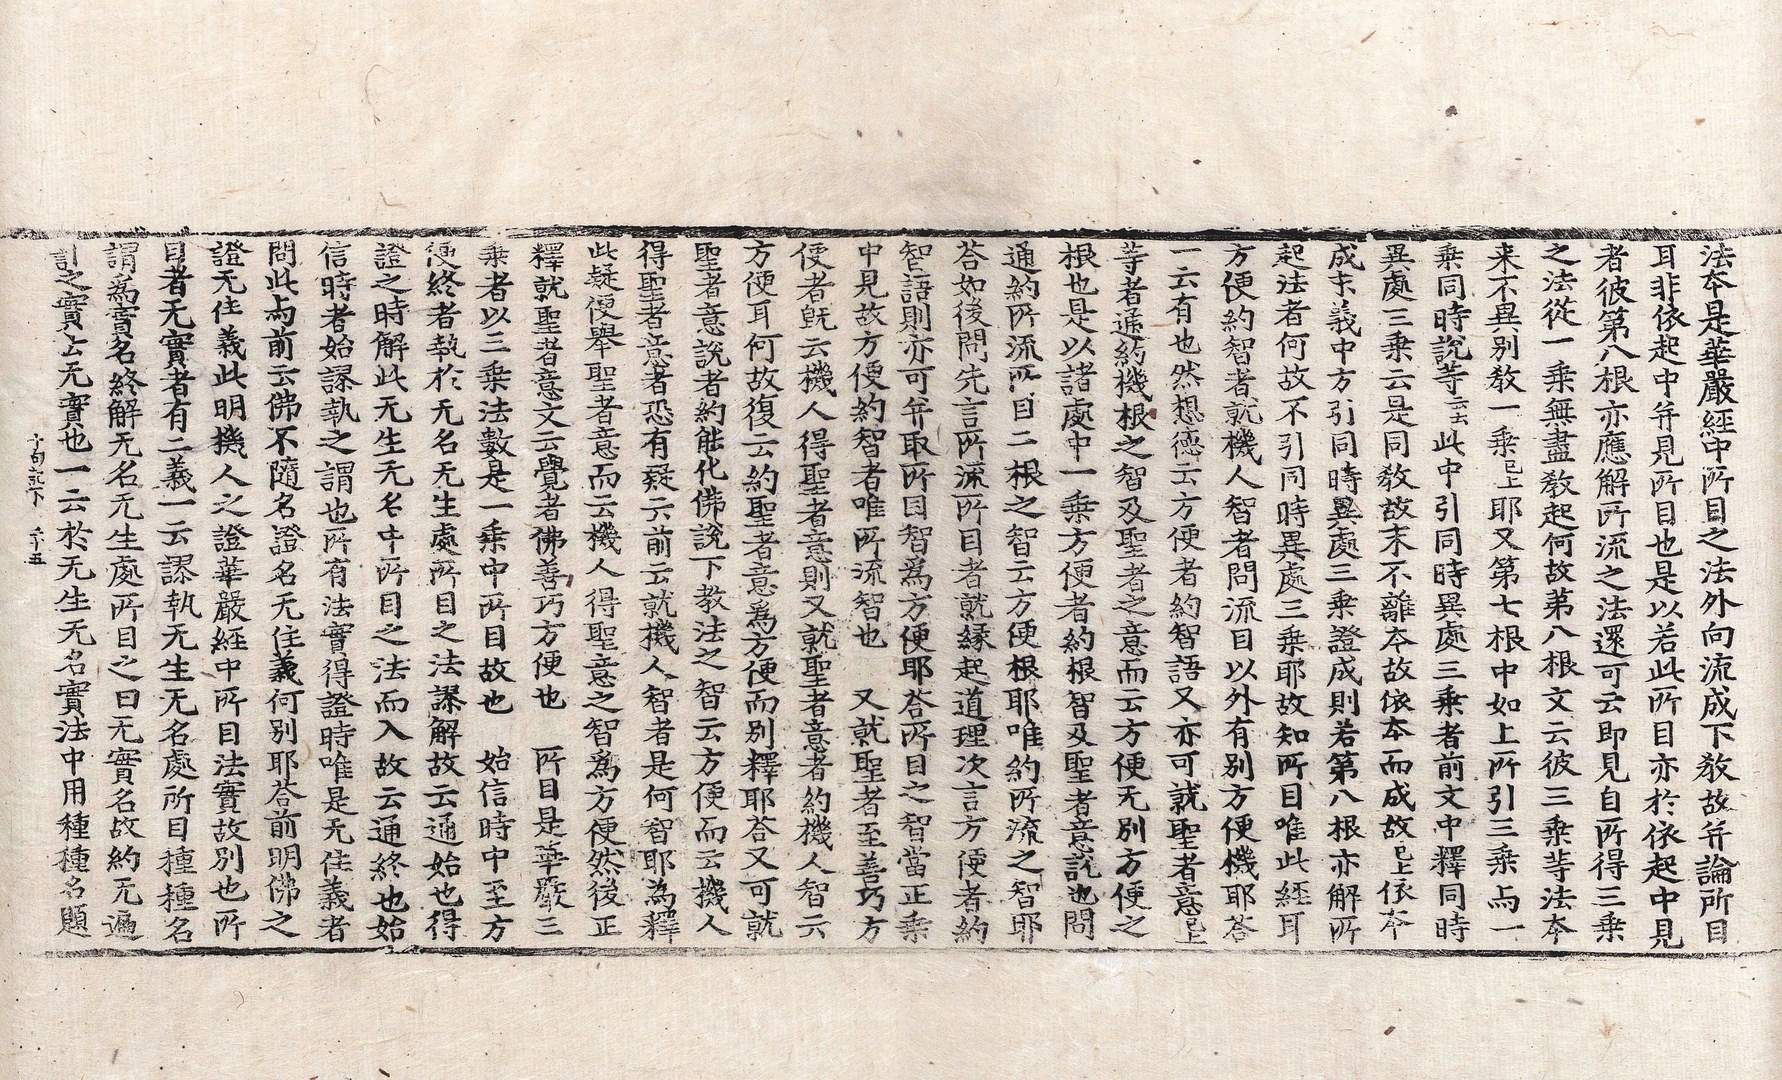 法本是華嚴經中所目之法外向流成下敎故弁論所目
耳非依起中弁見所目也是以若此所目亦於依起中見
者彼第八根亦應解所流之法還可云即見自所得三乗
之法從一乗無盡敎起何故第八根文云彼三乗䒭法本
来不異別敎一乗已上耶又第七根中如上所引三乗与一
乗同時說等云云此中引同時異處三乗者前文中釋同時
異處三乗云是同敎故末不離本故依本而成故已上依本
成末義中方引同時異處三乗證成則若第八根亦解所
起法者何故不引同時異處三乗耶故知所目唯此經耳
方便約智者就機人智者問流目以外有別方便機耶荅
一云有也然想德云方便者約智語又亦可就聖者意已上
等者通約機根之智及聖者之意而云方便无別方便之
根也是以諸處中一乗方便者約根智及聖者意說也問
通約所流所目二根之智云方便根耶唯約所流之智耶
荅如後問先言所流所目者就緣起道理次言方便者約
智語則亦可弁取所目智爲方便耶荅所目之智當正乗
中見故方便約智者唯所流智也　又就聖者至善巧方
便者旣云機人得聖者意則又就聖者意者約機人智云
方便耳何故復云約聖者意爲方便而別釋耶荅又可就
聖者意說者約能化佛說下敎法之智云方便而云機人
得聖者意者恐有疑云前云就機人智者是何智耶為釋
此疑便舉聖者意而云機人得聖意之智為方便然後正
釋就聖者意文云覺者佛善巧方便也　所目是華嚴三
乗者以三乗法數是一乗中所目故也　始信時中至方
便終者執於无名无生處所目之法謬解故云通始也得
證之時解此无生无名中所目之法而入故云通終也始
信時者始謬執之謂也所有法實得證時唯是无住義者
問此与前云佛不隨名證名无住義何別耶荅前明佛之
證无住義此明機人之證華嚴經中所目法實故別也所
目者无實者有二義一云謬執无生无名處所目種種名
謂爲實名終解无名无生處所目之曰无實名故約无遍
計之實云无實也一云於无生无名實法中用種種名題
十句記下　二十五